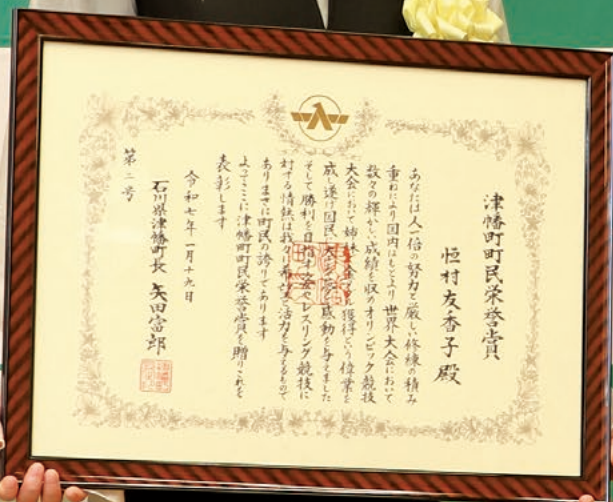 津幡町町民栄誉賞
恒村友香子殿
あなたは人一倍の努力と厳しい修練の積み
重ねにより国内はもとより世界大会において
数々の輝かしい成績を収めオリンピック競技
大会において姉妹で金メダル獲得という偉業を
成し遂げ国民に大きな夢と感動を与えました
そして勝利を目指す姿やレスリング競技に
対する情熱は我々に希望と活力を与えるもので
ありまさに町民の誇りであります
よってここに津幡町町民栄誉賞を贈りこれを
表彰します
令和七年一月十九日
石川県津幡町長 矢田富郎
第二号